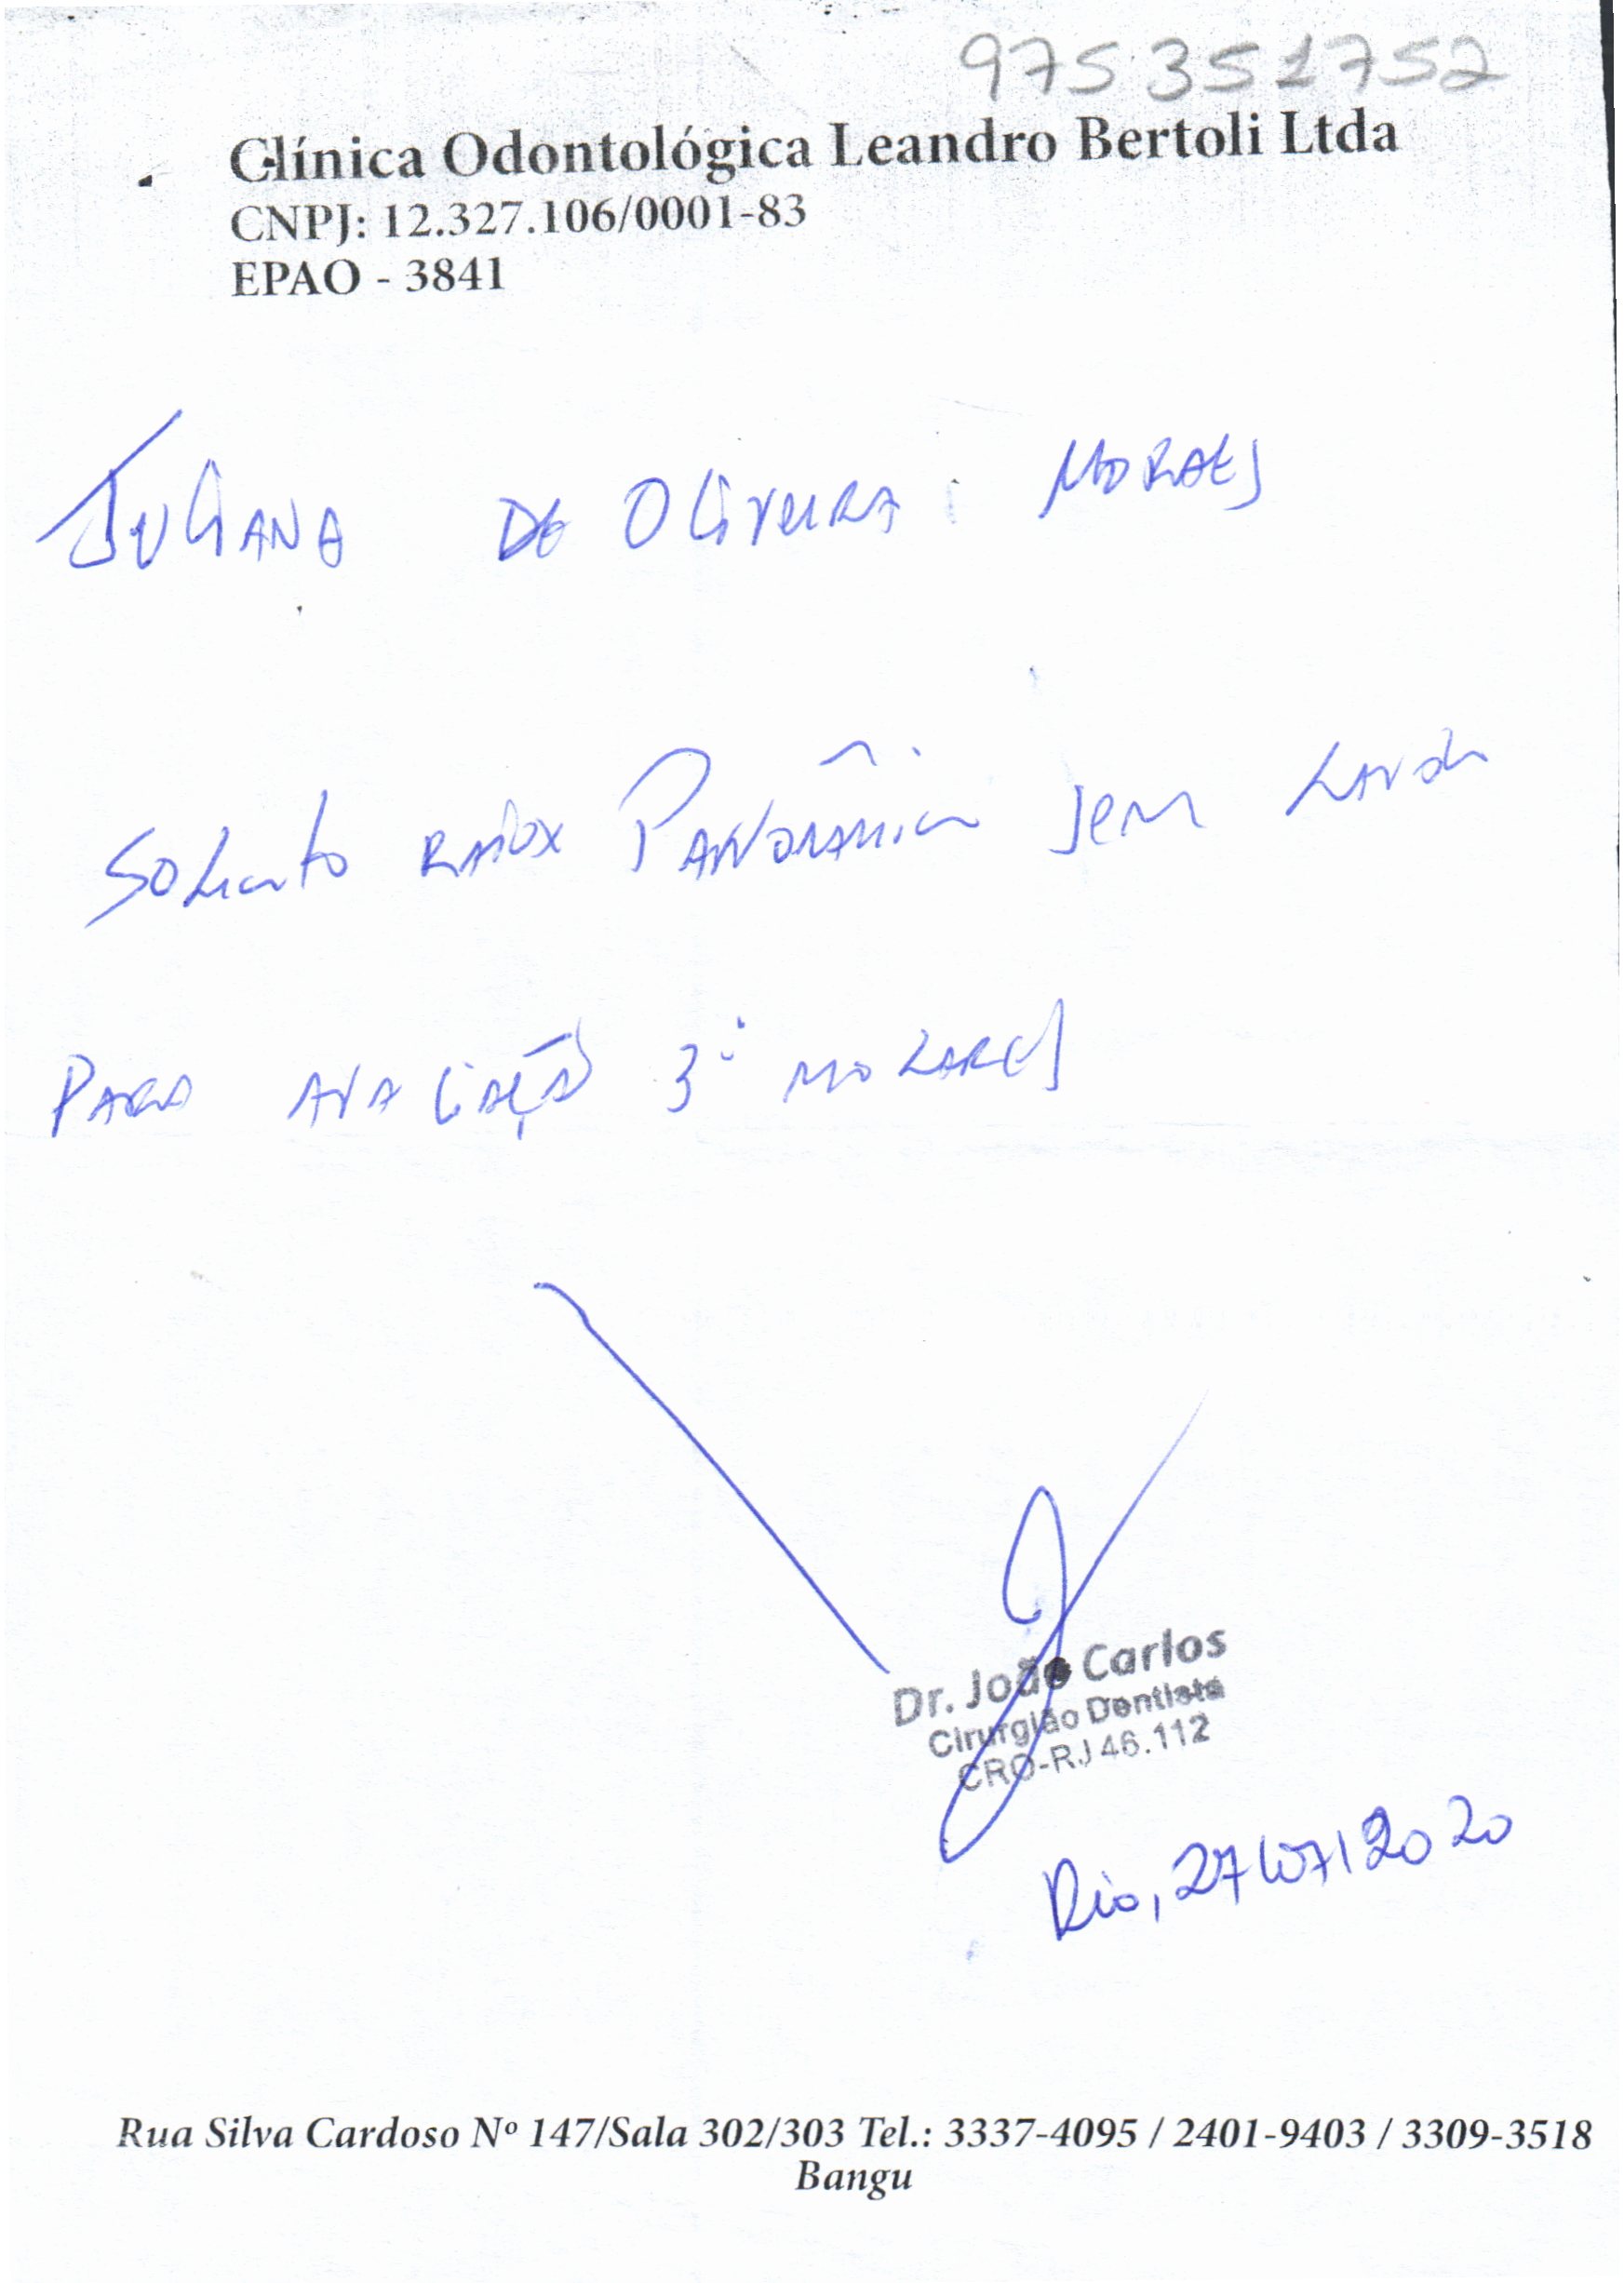 975351752
Clínica Odontológica Leandro Bertoli Ltda
CNPJ: 12.327.106/0001-83
EPAO - 3841
JULIANA DE OLIVEIRA MORAES
Solicito RAIOX PANORÂMICA sem laudo
PARA AVALIAÇÃO 3º MOLARES
Dr. João Carlos
Cirurgião Dentista
CRO-RJ 46.112
Rio, 27/07/2020
Rua Silva Cardoso Nº 147/Sala 302/303 Tel.: 3337-4095 / 2401-9403 / 3309-3518
Bangu